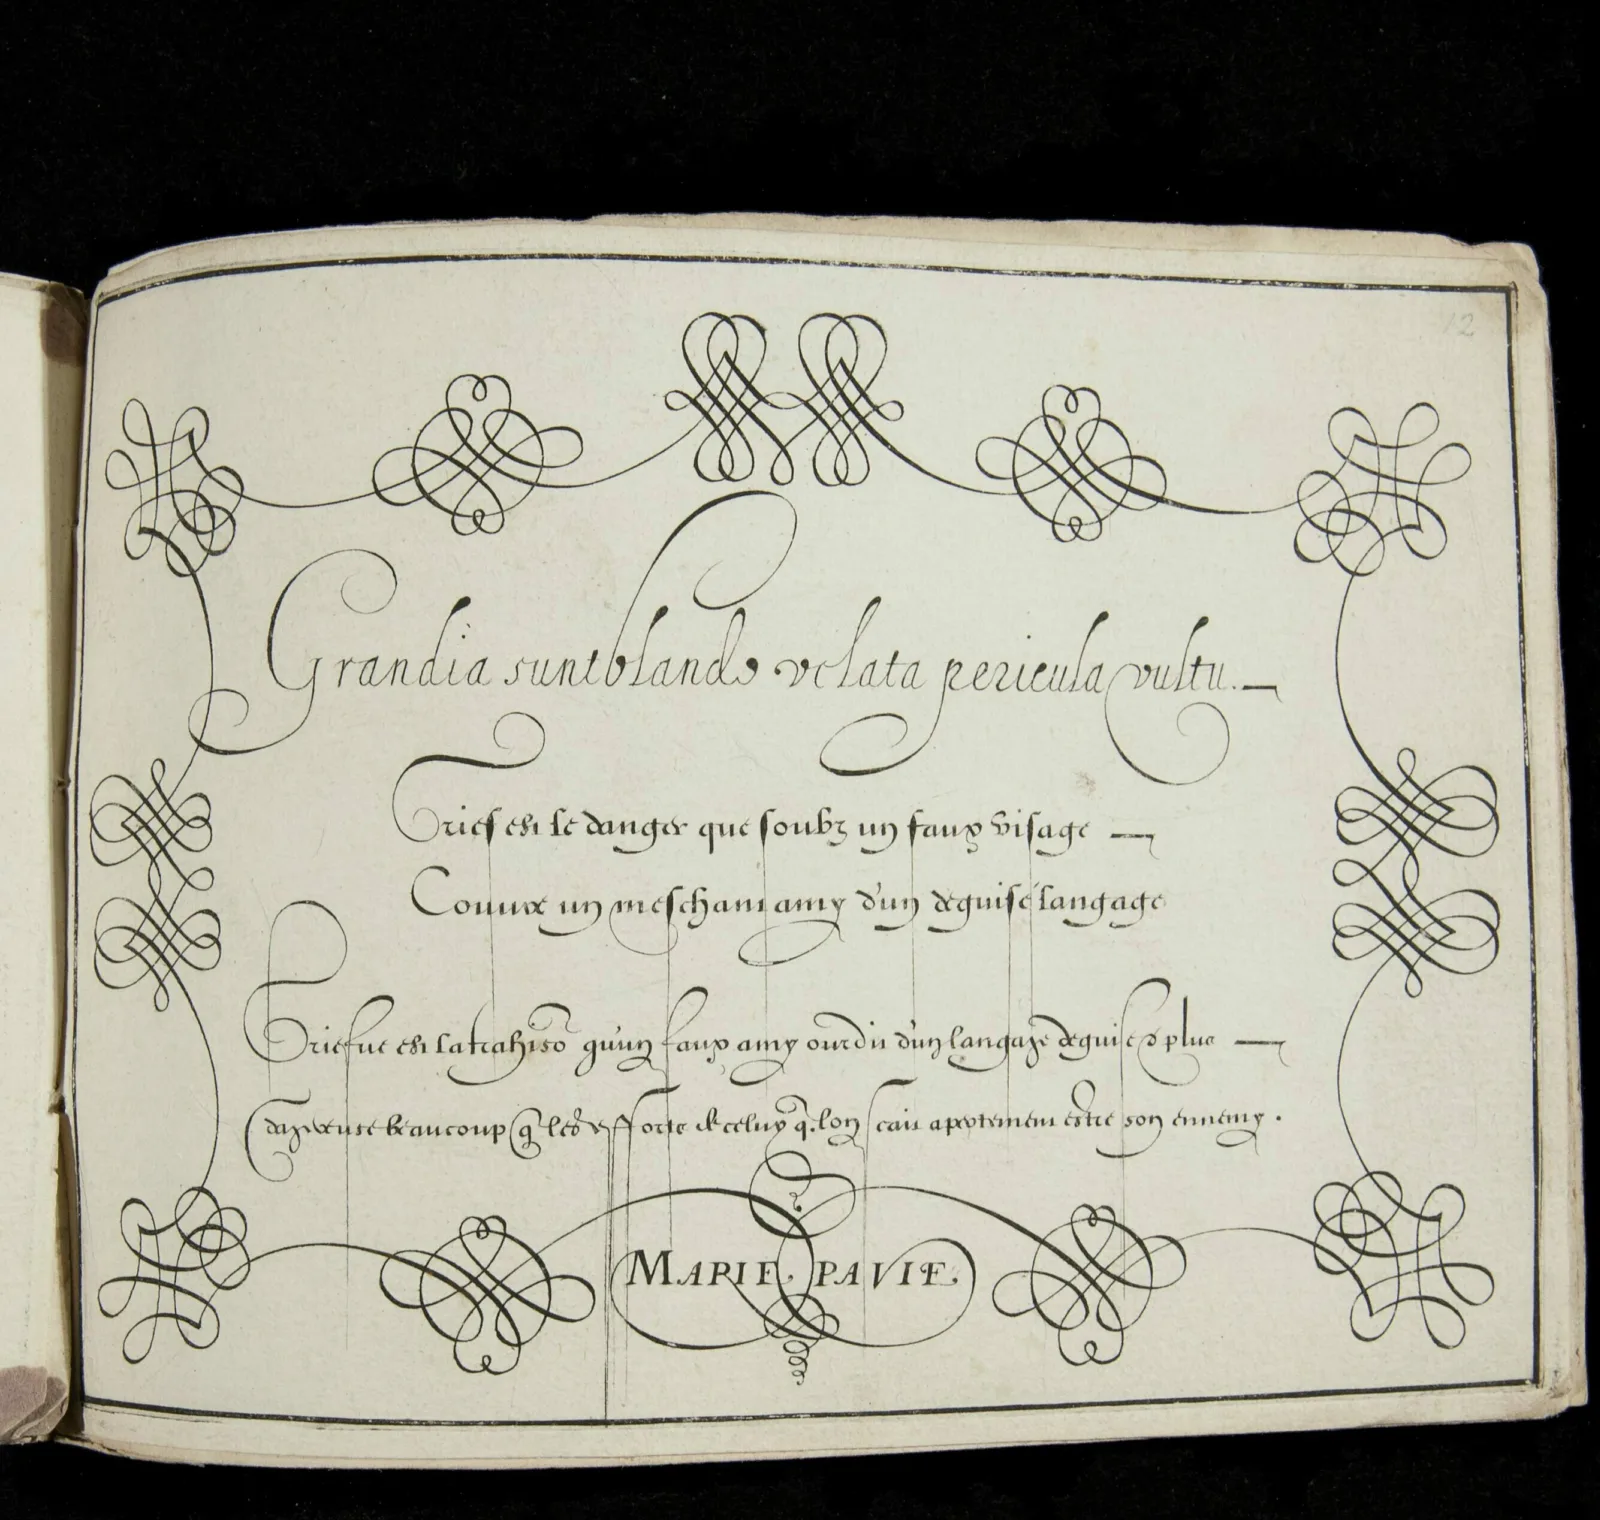 12
Grandia sunt blando velata pericula vultu.
Grief est le danger que soubz un faux visage
Couure un meschant amy d'un deguisé langage
Griefue est la trahisõ qu'un faux amy ourdit d'un langage deguisé & plus
dangereuse beaucoup q̃ les forte de celuy q̃ lon scait apertement estre son ennemy.
MARIE PAVIE.